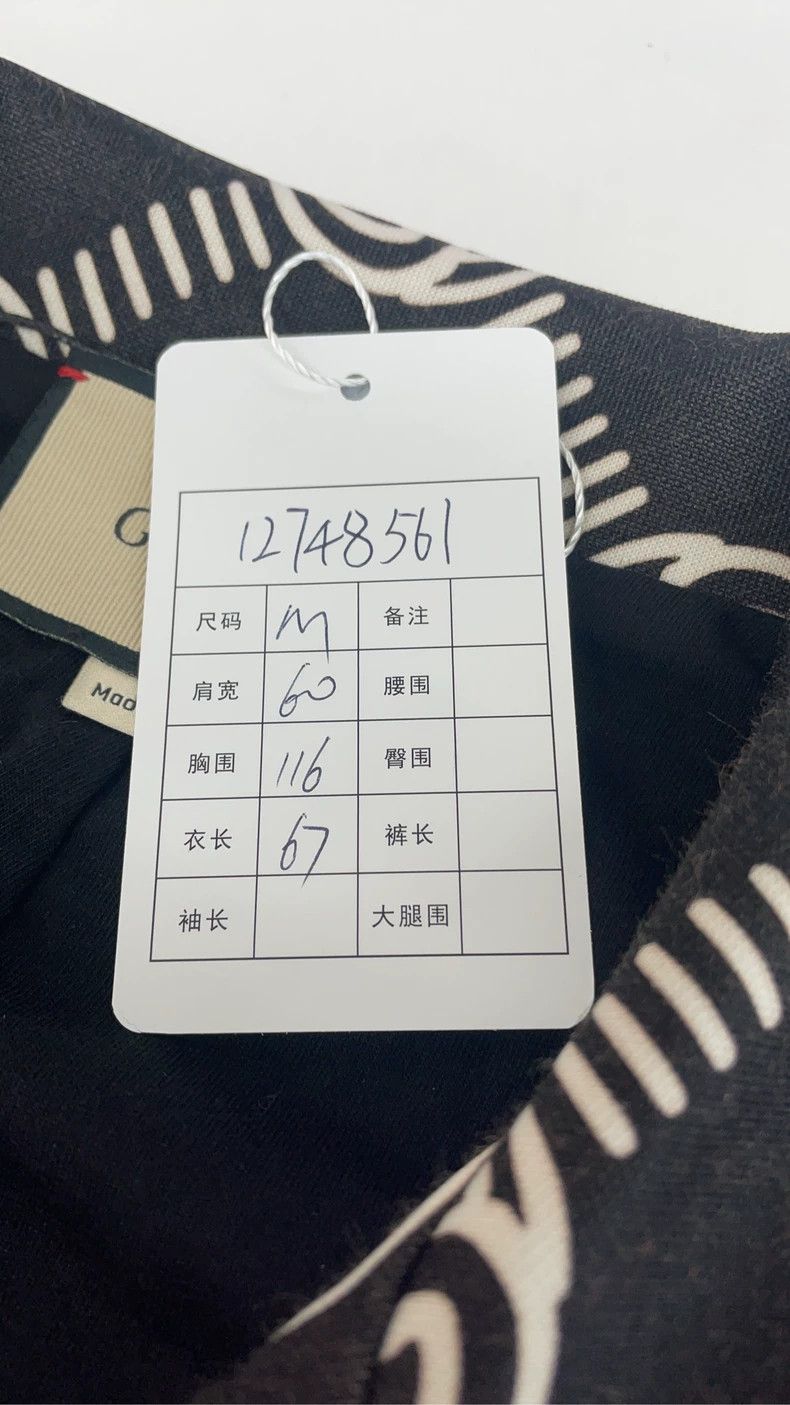 12748561
尺码 M 备注
肩宽 60 腰围
胸围 116 臀围
衣长 67 裤长
袖长 大腿围
G
Mad